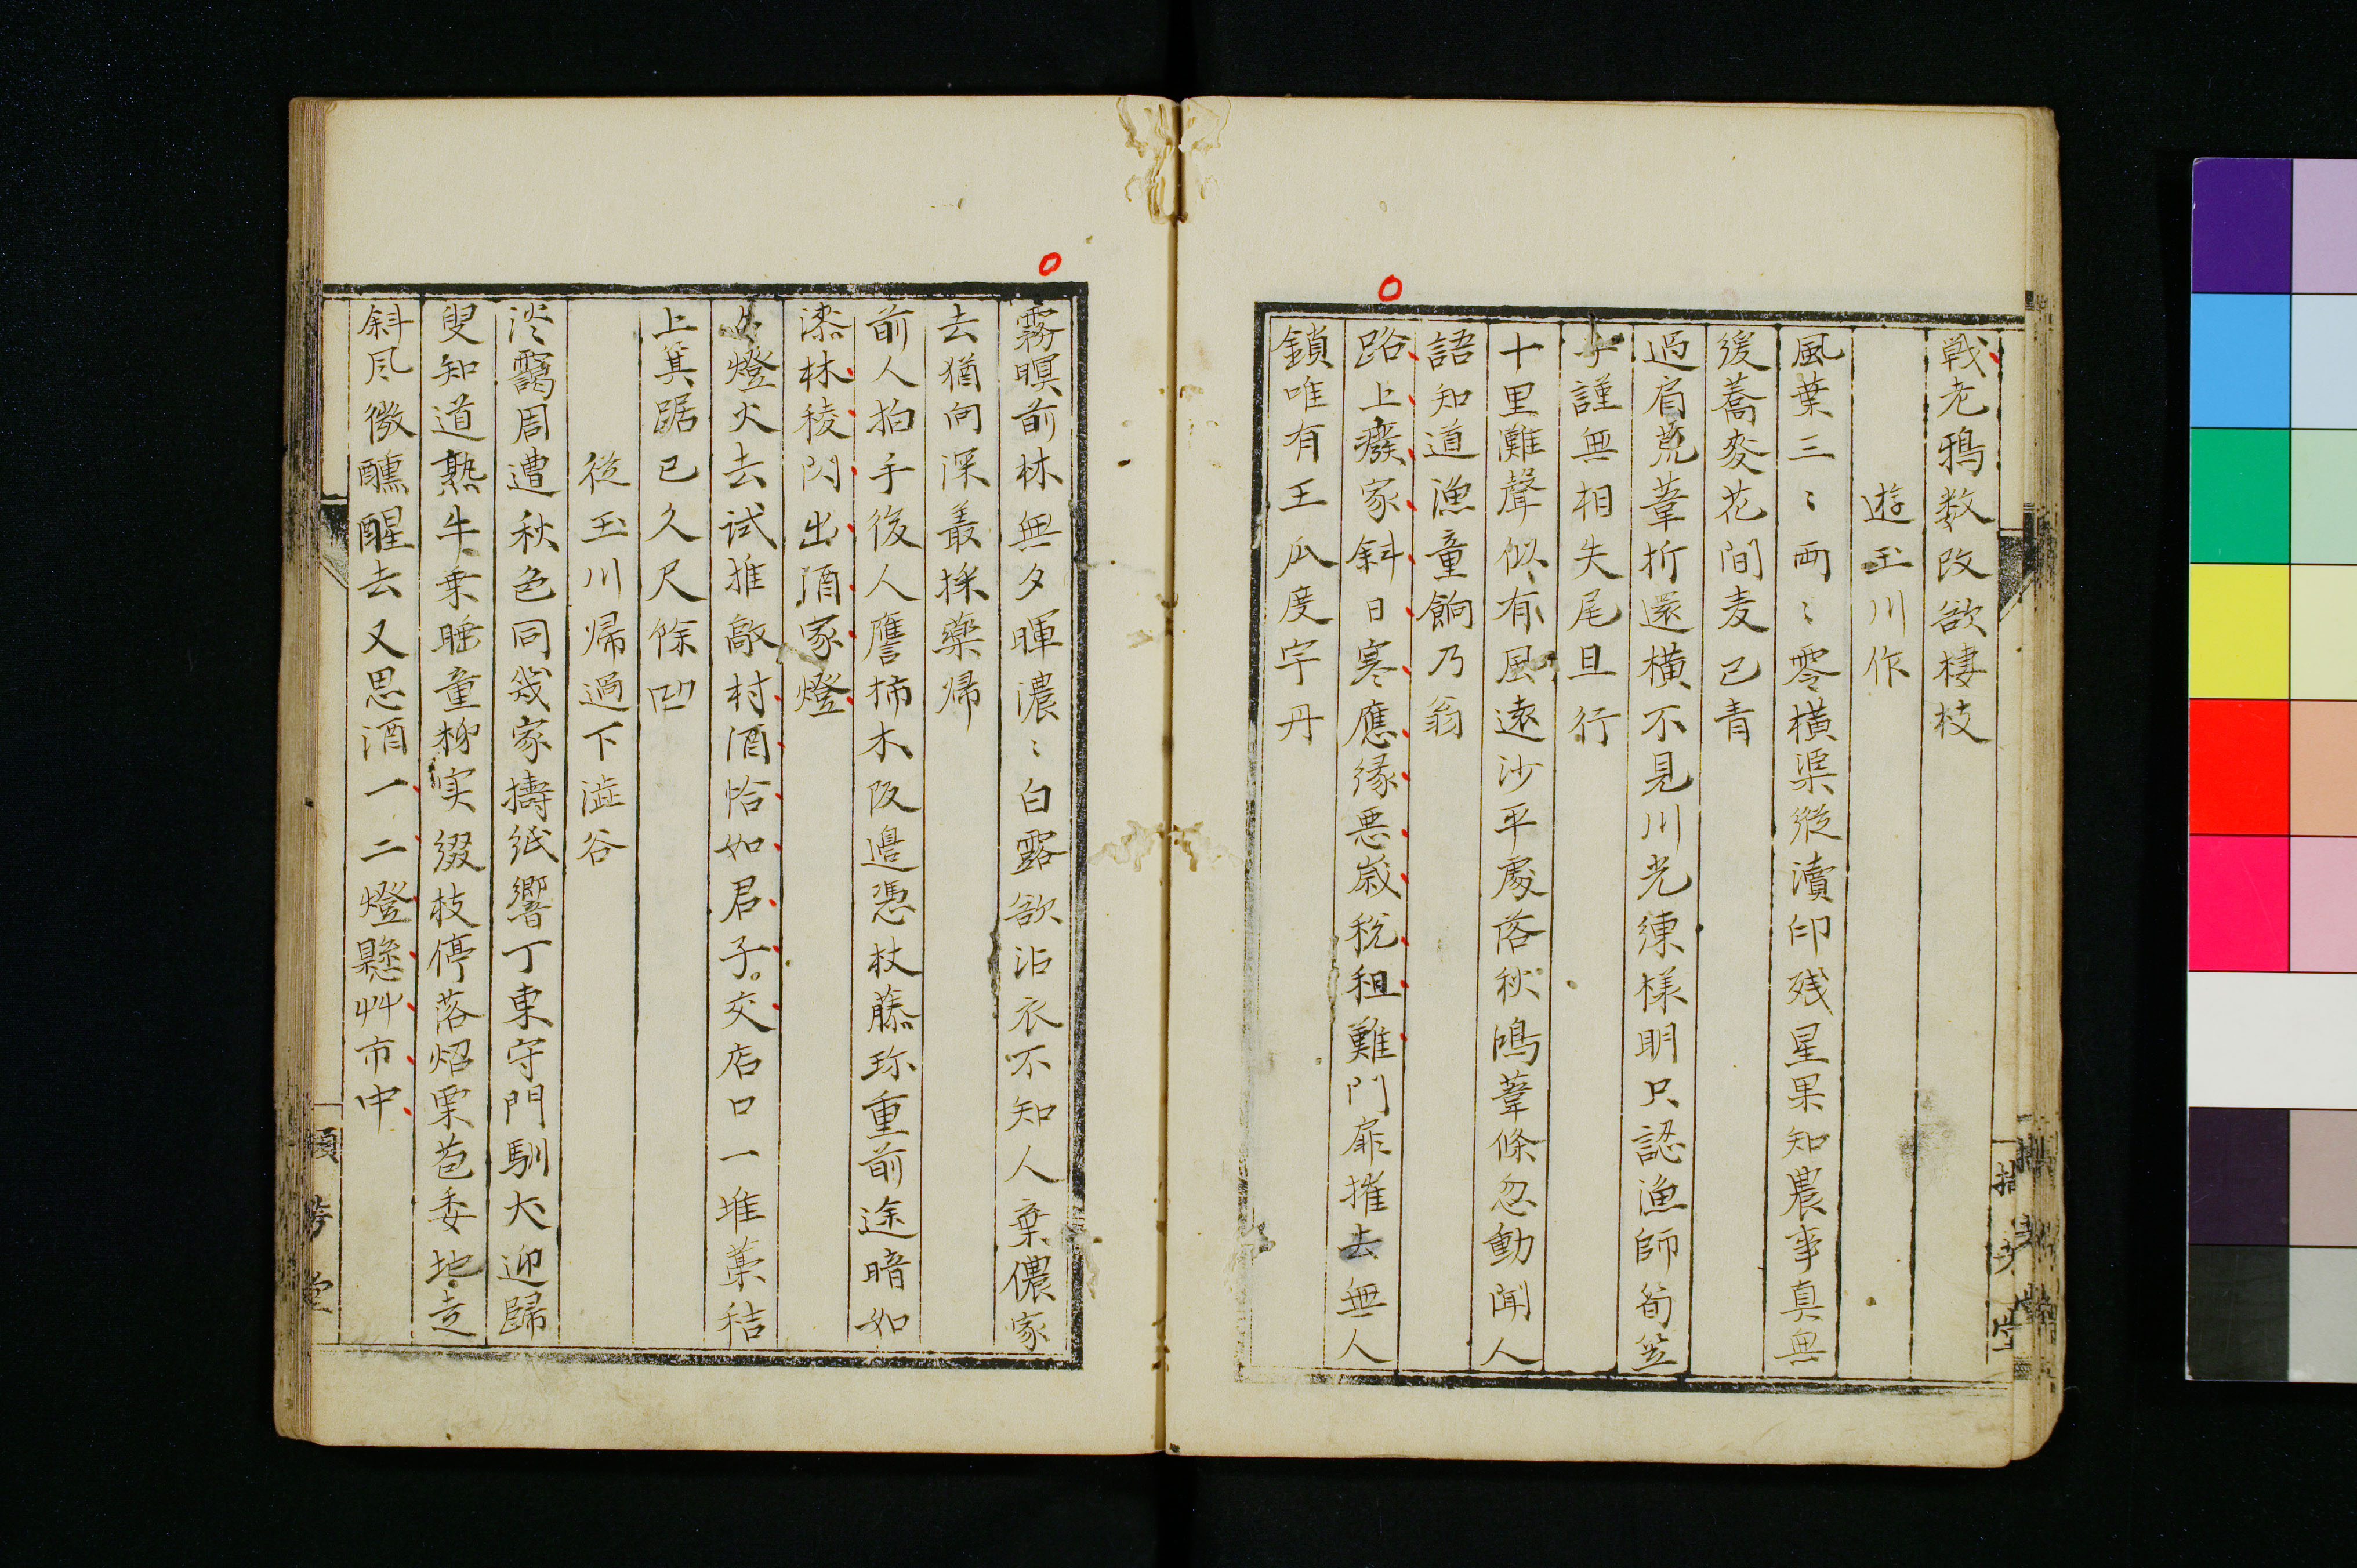 戦老鴉数改欲棲枝
遊玉川作
風葉三〻両〻零横渠縦瀆印残星果知農事真無
後蕎麥花間麦已青
過肩荒葦折還横不見川光練様明只認漁師筍笠
子謹無相失尾且行
十里灘聲似有風遠沙平處落秋鴻葦條忽動聞人
語知道漁童餉乃翁
路上癈家斜日寒應緣悪歳税租難門扉摧去無人
鎖唯有王瓜度宇丹
霧暝前林無夕暉濃〻白露欲沾衣不知人棄儂家
去猶向深叢採藥帰
前人拍手後人譍柿木阪邉憑杖藤珎重前途暗如
漆林稜閃出酒家燈
燈火去試推敲村酒恰如君子交店口一堆藁秸
上箕踞已久尺餘凹
従玉川帰過下澁谷
淡靄周遭秋色同幾家擣紙響丁東守門馴犬迎歸
叟知道熟牛乗睡童柳実綴枝停落炤栗苞委地走
斜风微醺醒去又思酒一二燈懸艸市中